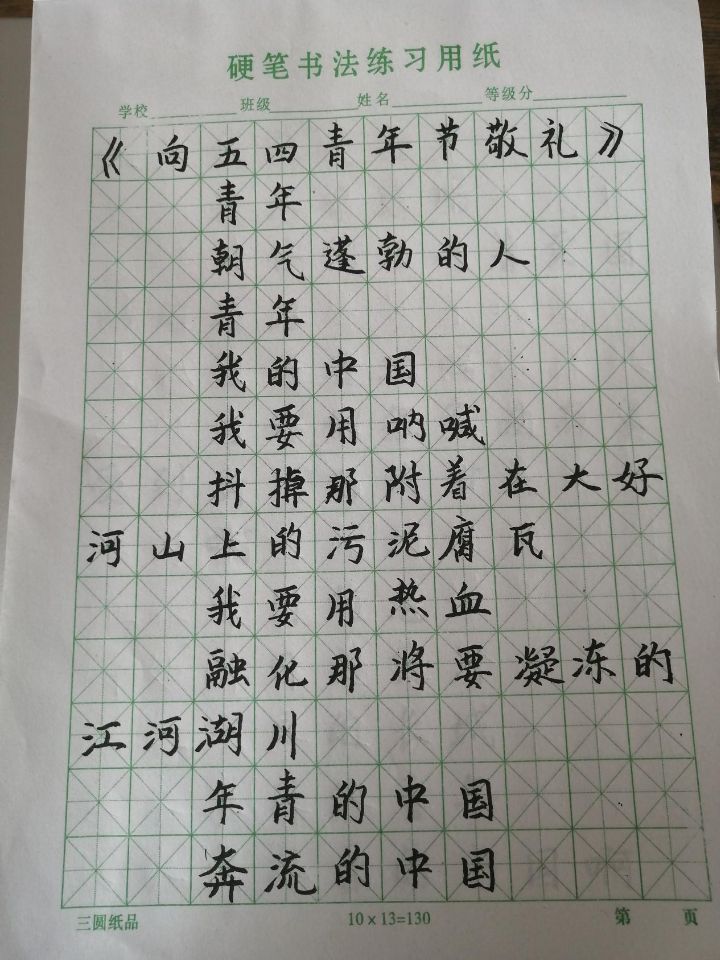 硬笔书法练习用纸
学校 班级 姓名 等级分
《向五四青年节敬礼》
青年
朝气蓬勃的人
青年
我的中国
我要用呐喊
抖掉那附着在大好
河山上的污泥腐瓦
我要用热血
融化那将要凝冻的
江河湖川
年青的中国
奔流的中国
三圆纸品 10×13=130 第 页